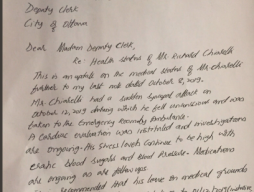 Deputy Clerk
City of Ottawa
Dear Madam Deputy Clerk,
Re: Health status of Mr. Richard Chiarelli
This is an update on the medical status of Mr. Chiarelli
further to my last note dated October 2, 2019.
Mr. Chiarelli had a sudden syncopal attack on
October 12, 2019 during which he fell unconscious and was
taken to the Emergency Room by Ambulance.
A cardiac evaluation was instituted and investigations
are ongoing. His stress levels continue to be high with
erratic blood sugars and blood pressure. Medications
are ongoing as are follow ups.
recommended that his leave on medical grounds